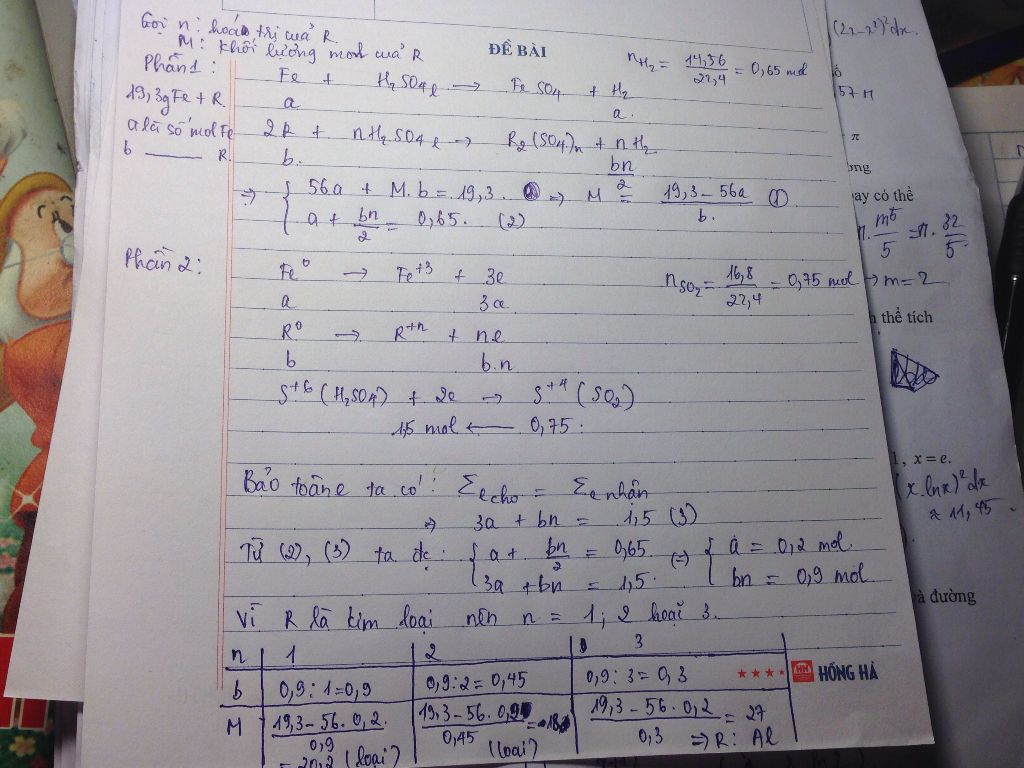 Gọi n: hoá trị của R.
M: khối lượng mol của R
ĐỀ BÀI
nH₂ = 14,56/22,4 = 0,65 mol
Phần 1:
19,3g Fe + R
a là số mol Fe
b —— R.
Fe + H₂SO₄ l → FeSO₄ + H₂
a a.
2R + nH₂SO₄ l → R₂(SO₄)n + nH₂
b. bn/2
⇒ { 56a + M.b = 19,3. ⇒ M = (19,3 – 56a)/b. (1)
a + bn/2 = 0,65. (2)
Phần 2:
nSO₂ = 16,8/22,4 = 0,75 mol
Fe⁰ → Fe⁺³ + 3e
a 3a
R⁰ → R⁺ⁿ + ne
b b.n
S⁺⁶ (H₂SO₄) + 2e → S⁺⁴ (SO₂)
1,5 mol ← 0,75.
Bảo toàn e ta có: Σe cho = Σe nhận
⇒ 3a + bn = 1,5 (3)
Từ (2), (3) ta đc: { a + bn/2 = 0,65 (=) { a = 0,2 mol.
3a + bn = 1,5. bn = 0,9 mol
Vì R là kim loại nên n = 1; 2 hoặc 3.
n 1 2 3
b 0,9 : 1 = 0,9 0,9 : 2 = 0,45 0,9 : 3 = 0,3
M (19,3 – 56.0,2)/0,9 = 20,2 (loại) (19,3 – 56.0,2)/0,45 = 18 (loại) (19,3 – 56.0,2)/0,3 = 27 ⇒ R: Al
HỒNG HÀ
(2x–x²)²dx.
57 π
π
ay có thể
π.m⁵/5 = π.32/5
→ m = 2
thể tích
1, x = e.
(x.lnx)²dx
≈ 11,45
và đường